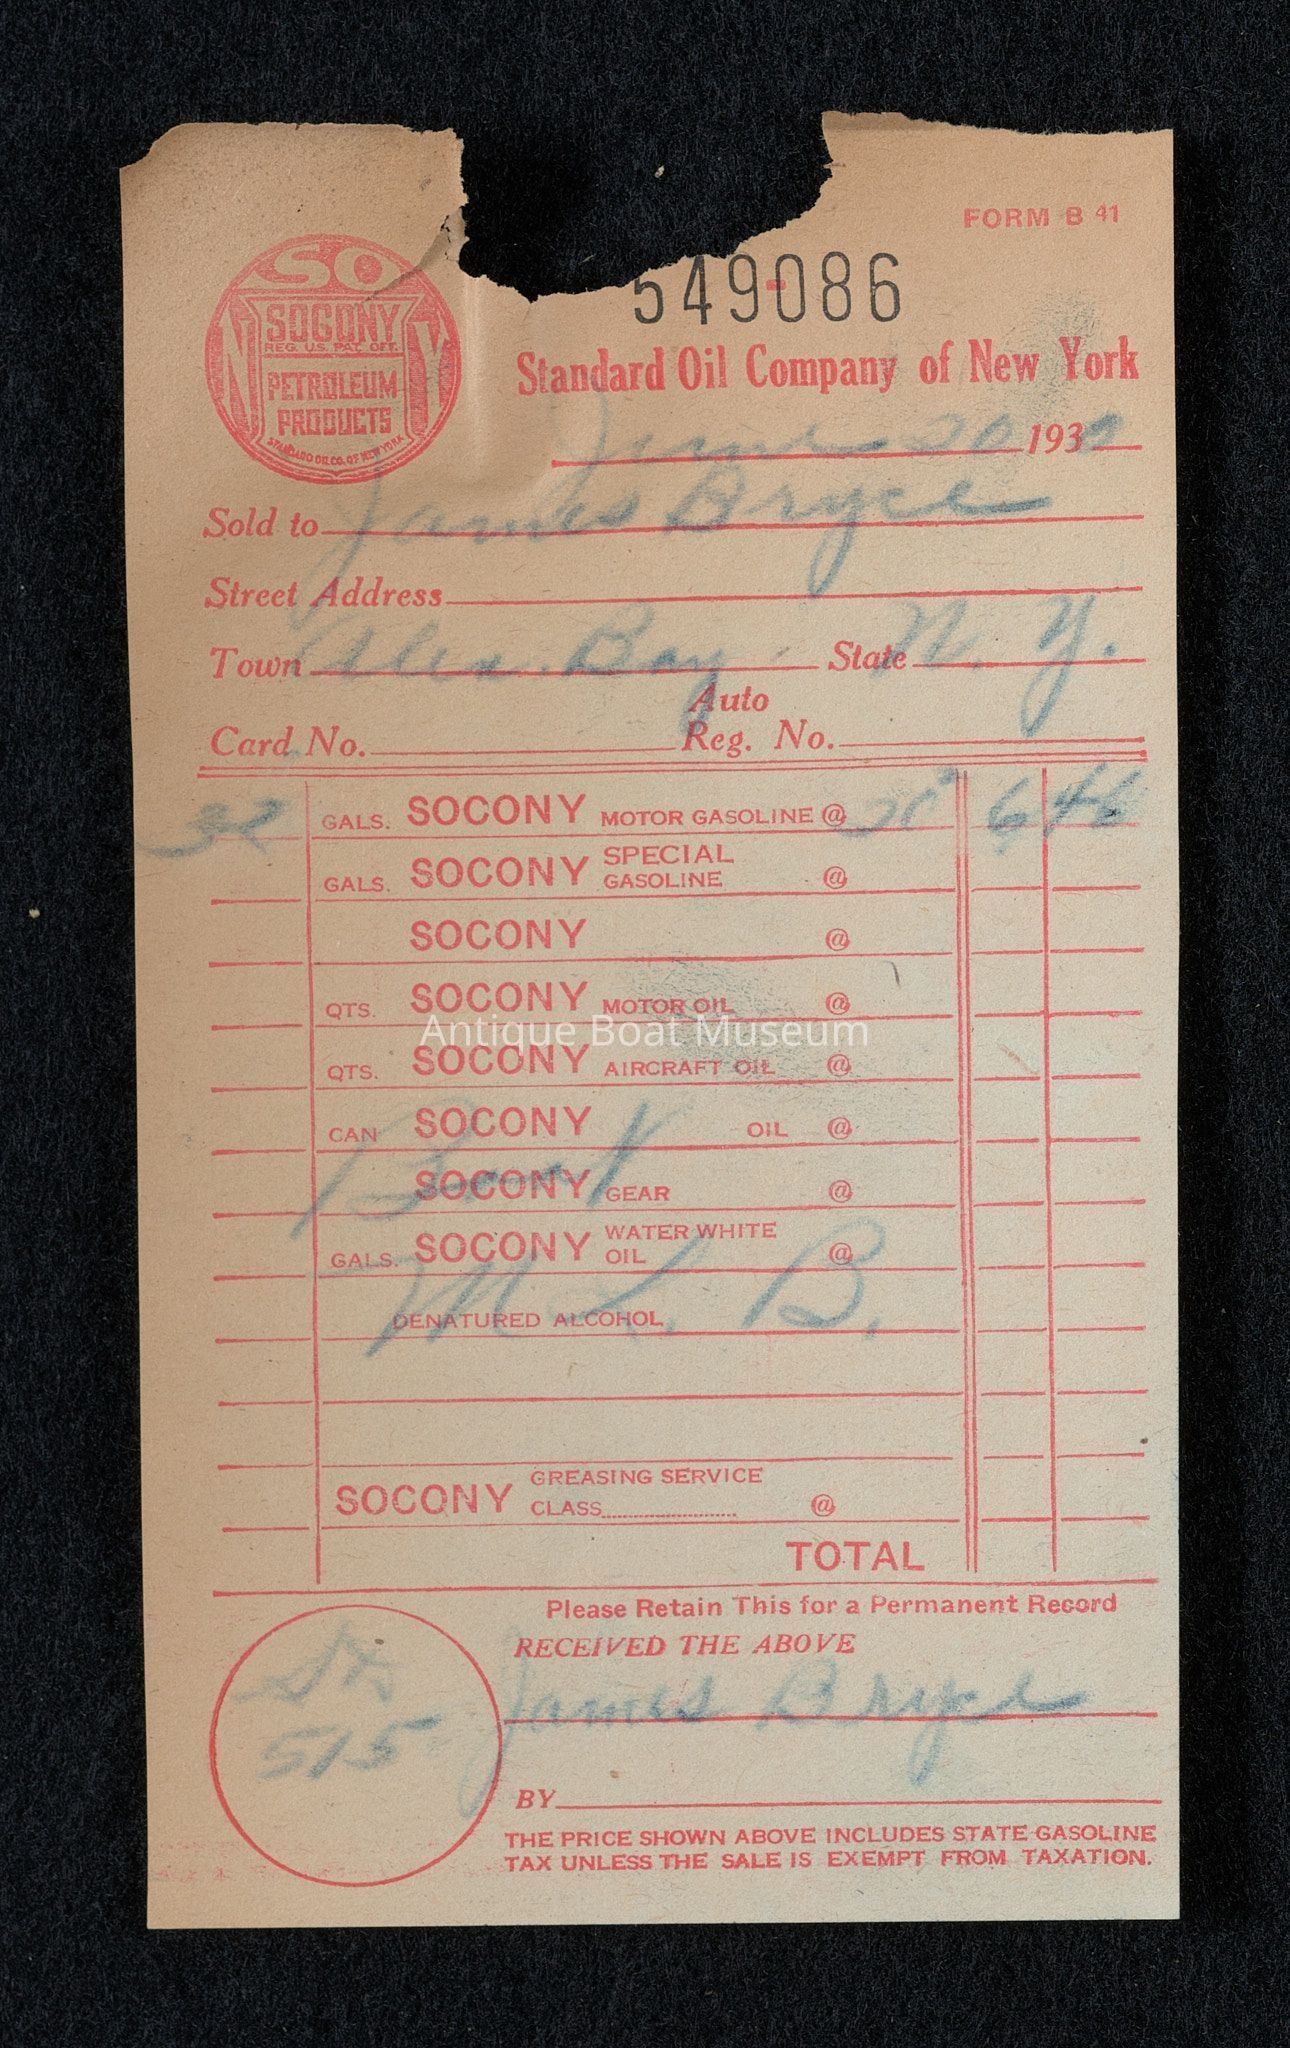 FORM B 41
SO
N Y
SOCONY
REG. U.S. PAT. OFF.
PETROLEUM
PRODUCTS
STANDARD OIL CO. OF NEW YORK
549-086
Standard Oil Company of New York
June 20 193
Sold to James Bryce
Street Address
Town Alex. Bay State N. Y.
Card No. Auto Reg. No.
32 GALS. SOCONY MOTOR GASOLINE @ 6 46
GALS. SOCONY SPECIAL GASOLINE @
SOCONY @
QTS. SOCONY MOTOR OIL @
Antique Boat Museum
QTS. SOCONY AIRCRAFT OIL @
CAN SOCONY OIL @
Boat
SOCONY GEAR @
GALS. SOCONY WATER WHITE OIL @
M L. B.
DENATURED ALCOHOL
SOCONY GREASING SERVICE
CLASS @
TOTAL
Please Retain This for a Permanent Record
RECEIVED THE ABOVE
James Bryce
515
BY
THE PRICE SHOWN ABOVE INCLUDES STATE GASOLINE
TAX UNLESS THE SALE IS EXEMPT FROM TAXATION.